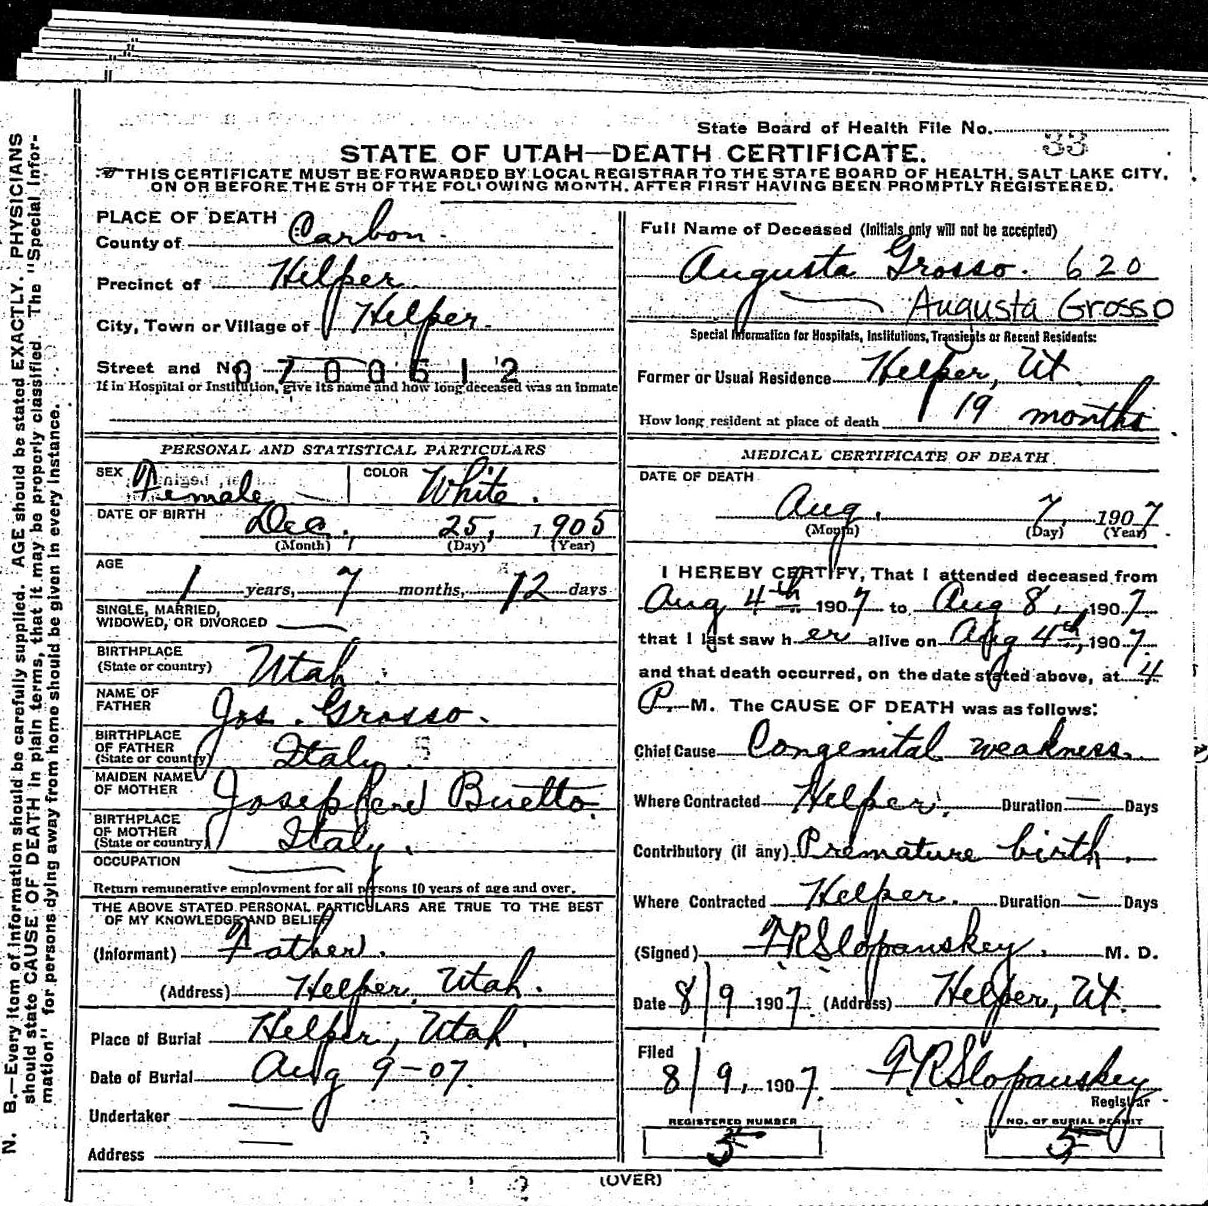 N. B.—Every item of information should be carefully supplied. AGE should be stated EXACTLY. PHYSICIANS
should state CAUSE OF DEATH in plain terms, that it may be properly classified. The "Special Infor-
mation" for persons dying away from home should be given in every instance.
State Board of Health File No. 33
STATE OF UTAH—DEATH CERTIFICATE.
THIS CERTIFICATE MUST BE FORWARDED BY LOCAL REGISTRAR TO THE STATE BOARD OF HEALTH, SALT LAKE CITY,
ON OR BEFORE THE 5TH OF THE FOLLOWING MONTH, AFTER FIRST HAVING BEEN PROMPTLY REGISTERED.
PLACE OF DEATH
County of Carbon.
Precinct of Helper
City, Town or Village of Helper.
Street and No. 0700612
If in Hospital or Institution, give its name and how long deceased was an inmate
PERSONAL AND STATISTICAL PARTICULARS
SEX Female COLOR White.
DATE OF BIRTH Dec. 25, 1905
(Month) (Day) (Year)
AGE
1 years, 7 months, 12 days
SINGLE, MARRIED,
WIDOWED, OR DIVORCED
BIRTHPLACE
(State or country) Utah
NAME OF
FATHER Jos. Grosso.
BIRTHPLACE
OF FATHER
(State or country) Italy
MAIDEN NAME
OF MOTHER Buetto.
BIRTHPLACE
OF MOTHER
(State or country) Italy.
OCCUPATION
Return remunerative employment for all persons 10 years of age and over.
THE ABOVE STATED PERSONAL PARTICULARS ARE TRUE TO THE BEST
OF MY KNOWLEDGE AND BELIEF
(Informant) Father.
(Address) Helper, Utah.
Place of Burial Helper, Utah.
Date of Burial Aug 9-07.
Undertaker
Address
Full Name of Deceased (Initials only will not be accepted)
Augusta Grosso. 620
Augusta Grosso
Special Information for Hospitals, Institutions, Transients or Recent Residents:
Former or Usual Residence Helper, Ut.
How long resident at place of death 19 months
MEDICAL CERTIFICATE OF DEATH
DATE OF DEATH
Aug. 7, 1907
(Month) (Day) (Year)
I HEREBY CERTIFY, That I attended deceased from
Aug 4th 1907 to Aug 8, 1907.
that I last saw her alive on Aug 4th, 1907.
and that death occurred, on the date stated above, at 4
P. M. The CAUSE OF DEATH was as follows:
Chief Cause Congenital weakness.
Where Contracted Helper. Duration — Days
Contributory (if any) Premature birth.
Where Contracted Helper. Duration — Days
(Signed) F.R. Slopanskey. M. D.
Date 8/9 1907. (Address) Helper, Ut.
Filed
8/9, 1907. F.R. Slopanskey
Registrar
REGISTERED NUMBER NO. OF BURIAL PERMIT
5 5
(OVER)